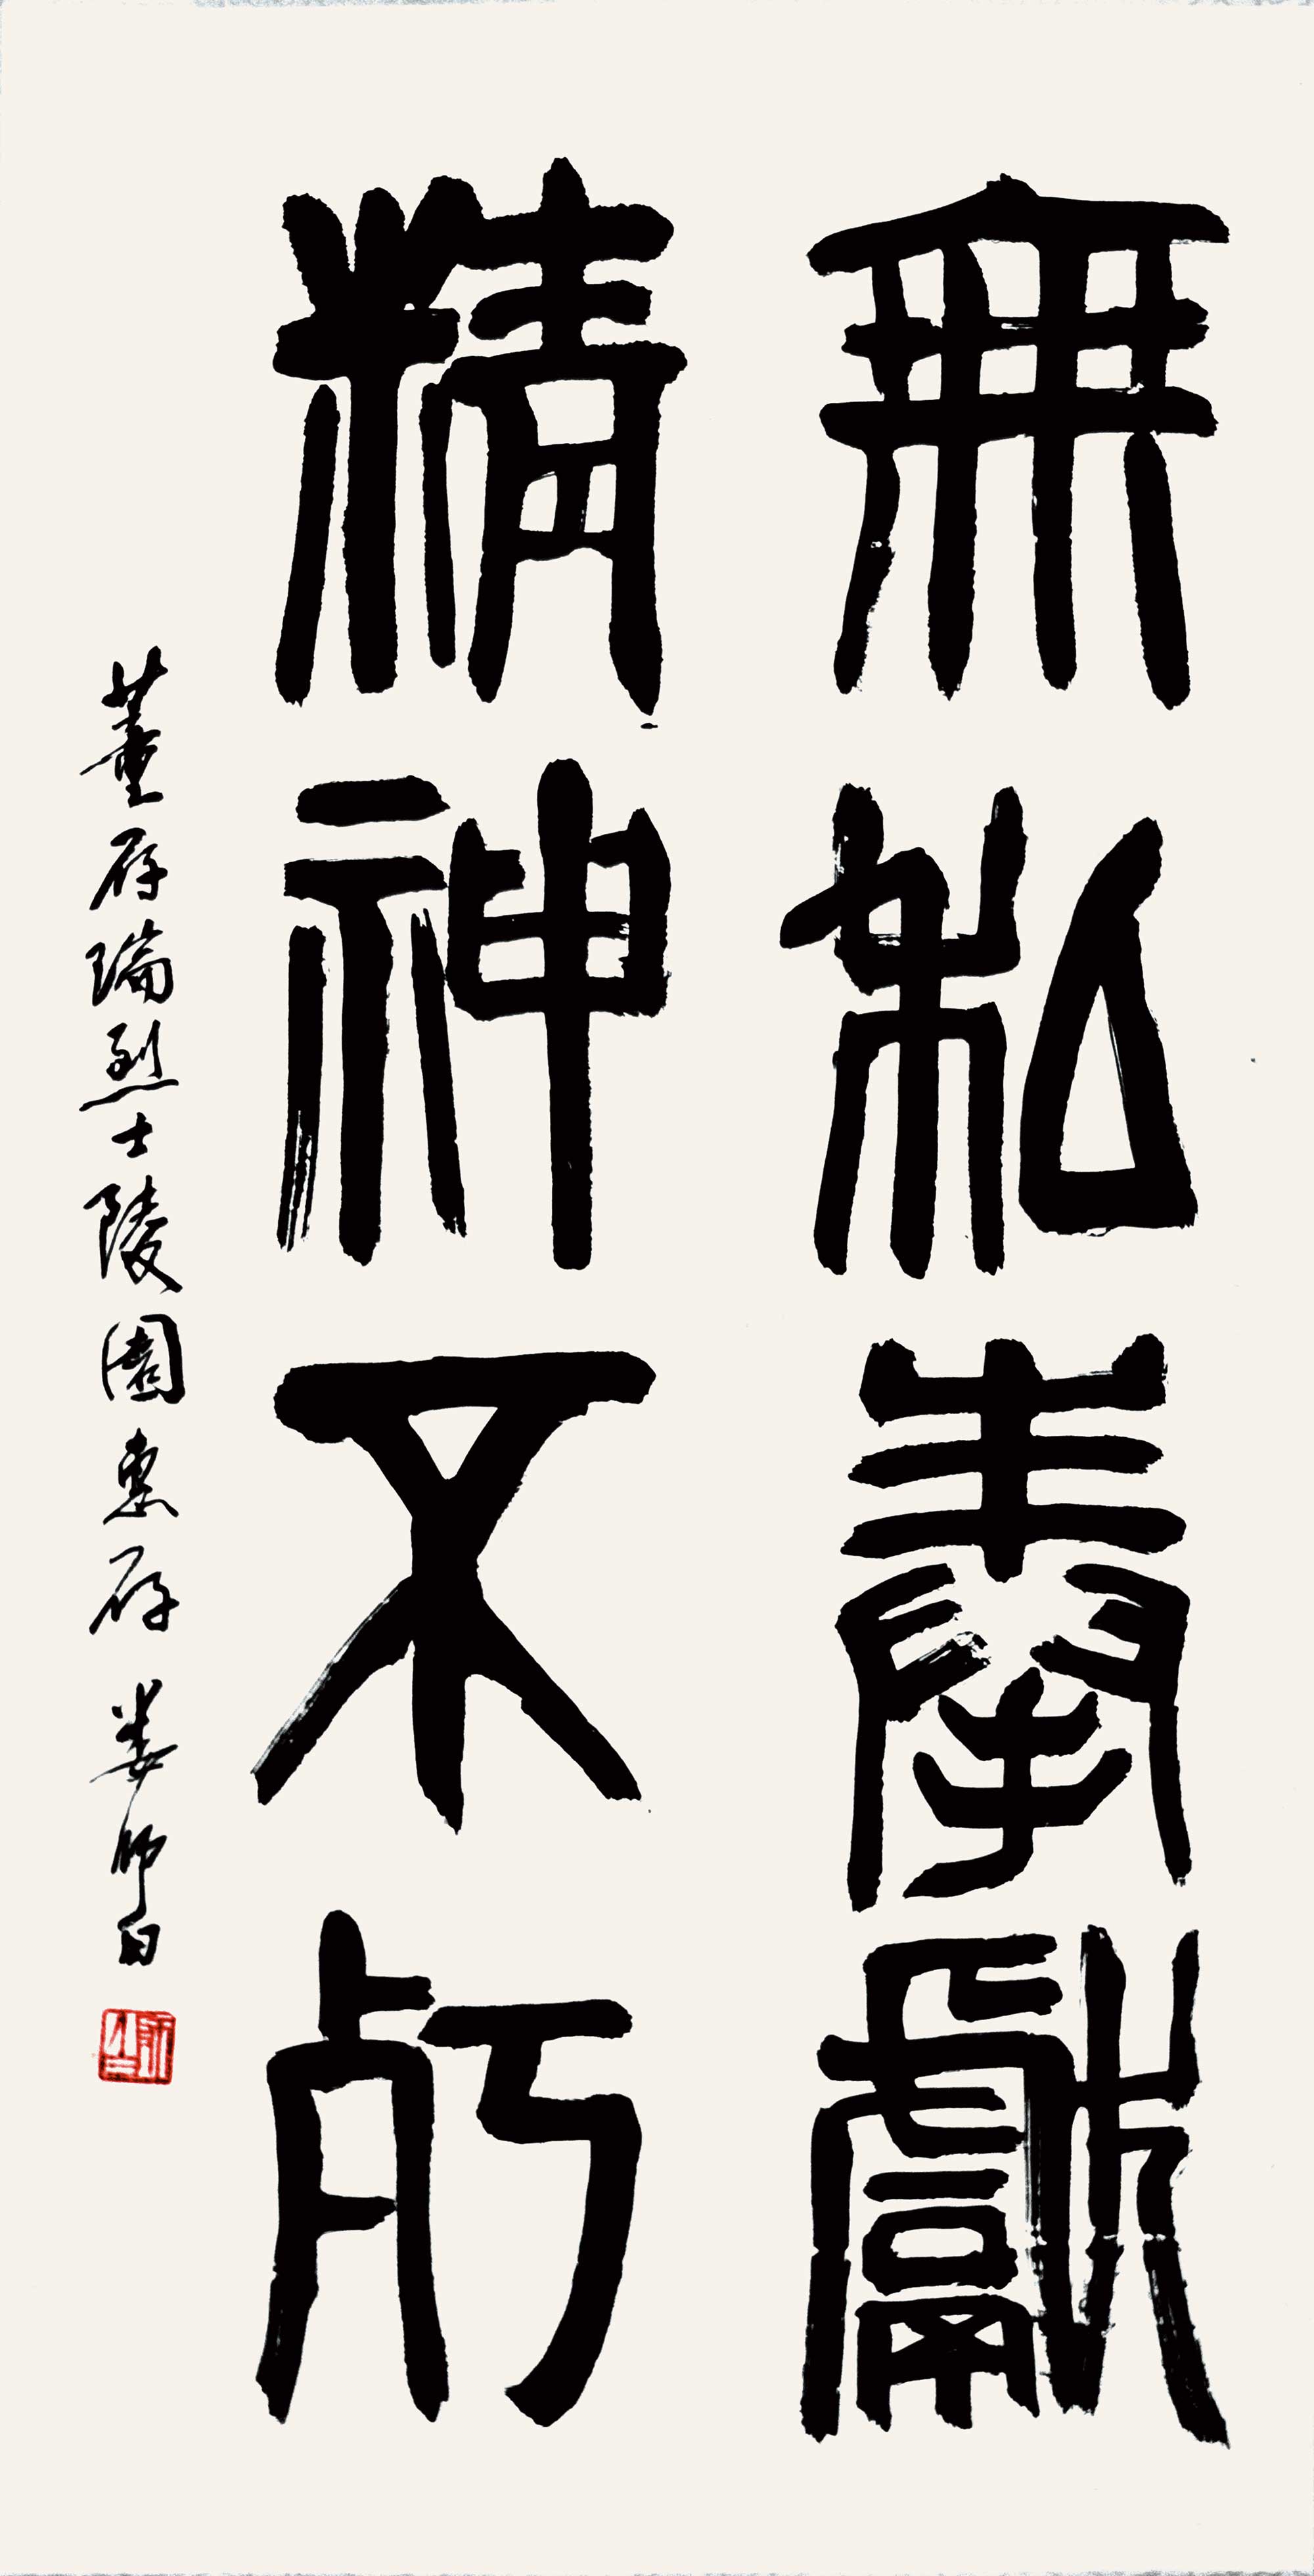 無私奉獻
精神不朽
董存瑞烈士陵園惠存 娄師白